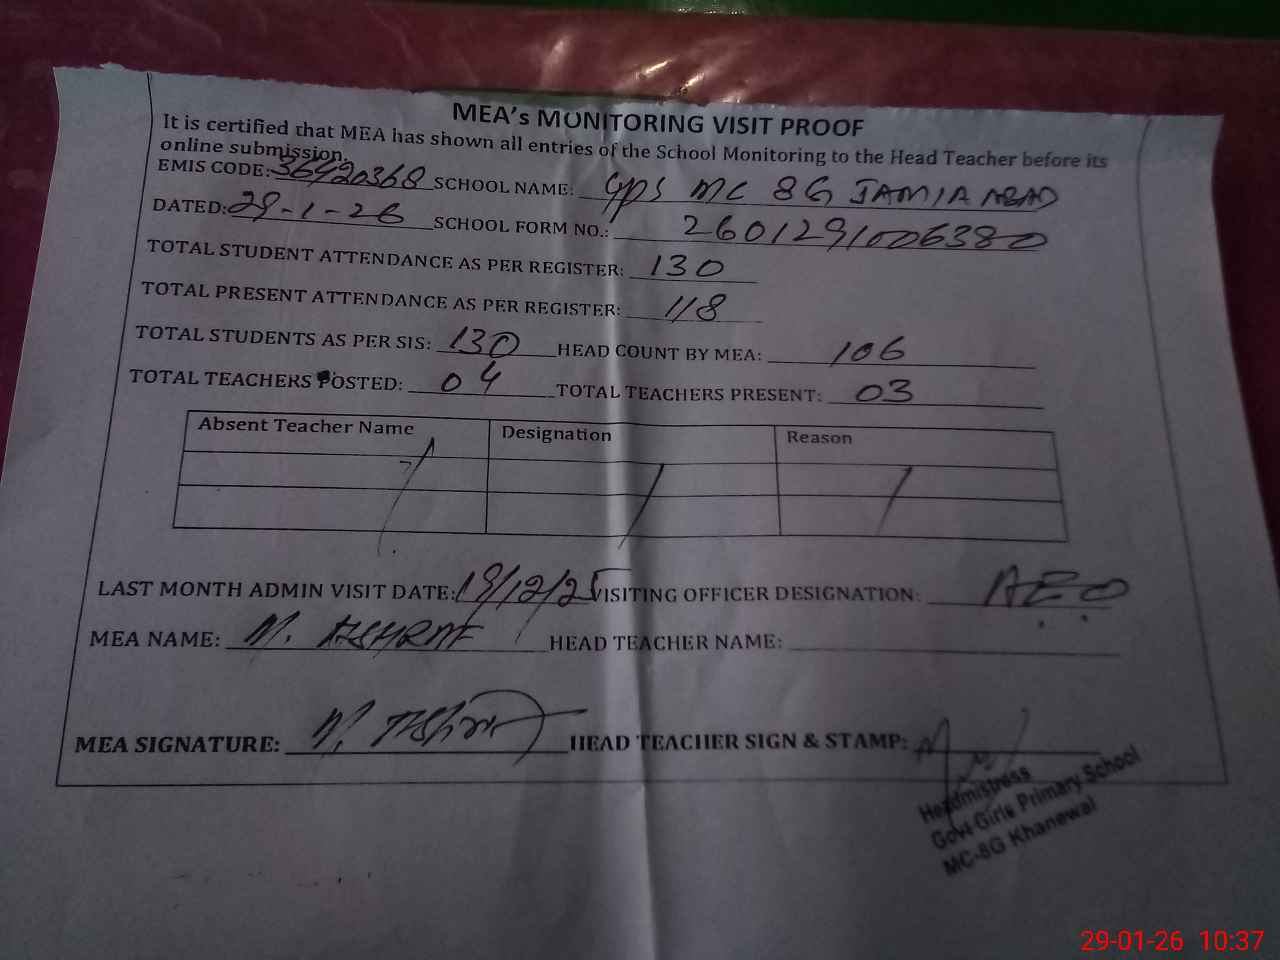 MEA's MONITORING VISIT PROOF
It is certified that MEA has shown all entries of the School Monitoring to the Head Teacher before its
online submission.
EMIS CODE: 36920368 SCHOOL NAME: GPS MC 8G JAMIA ABAD
DATED: 29-1-26 SCHOOL FORM NO.: 2601291006380
TOTAL STUDENT ATTENDANCE AS PER REGISTER: 130
TOTAL PRESENT ATTENDANCE AS PER REGISTER: 118
TOTAL STUDENTS AS PER SIS: 130 HEAD COUNT BY MEA: 106
TOTAL TEACHERS POSTED: 04 TOTAL TEACHERS PRESENT: 03
Absent Teacher Name Designation Reason
LAST MONTH ADMIN VISIT DATE: 19/12/25 VISITING OFFICER DESIGNATION: AEO
MEA NAME: M. ASHRAF HEAD TEACHER NAME:
MEA SIGNATURE: M. Ashraf HEAD TEACHER SIGN & STAMP:
Headmistress
Govt Girls Primary School
MC-8G Khanewal
29-01-26 10:37